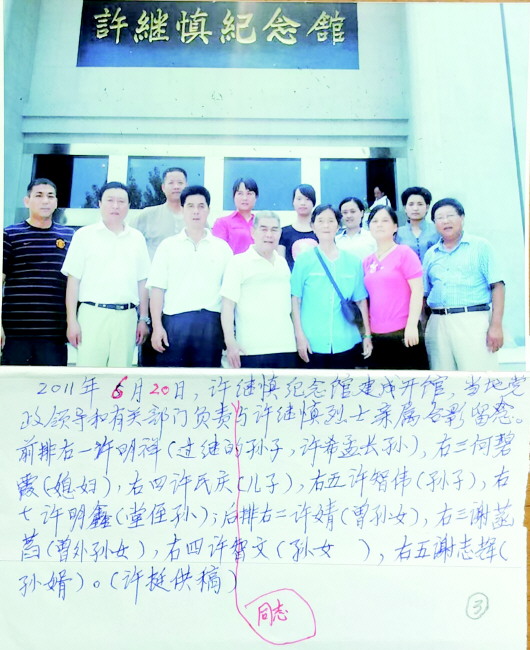 許継慎紀念館
2011年6月20日，许继慎纪念馆建成开馆，当地党
政领导和有关部门负责与许继慎烈士亲属合影留念。
前排右一许明祥(过继的孙子，许希孟长孙)，右三何碧
霞(媳妇)，右四许民庆(儿子)，右五许智伟(孙子)，右
七许明鑫(堂侄孙)；后排右二许婧(曾孙女)，右三谢菡
菡(曾外孙女)，右四许智文(孙女 )，右五谢志辉(
孙婿)。(许挺供稿)
同志
3